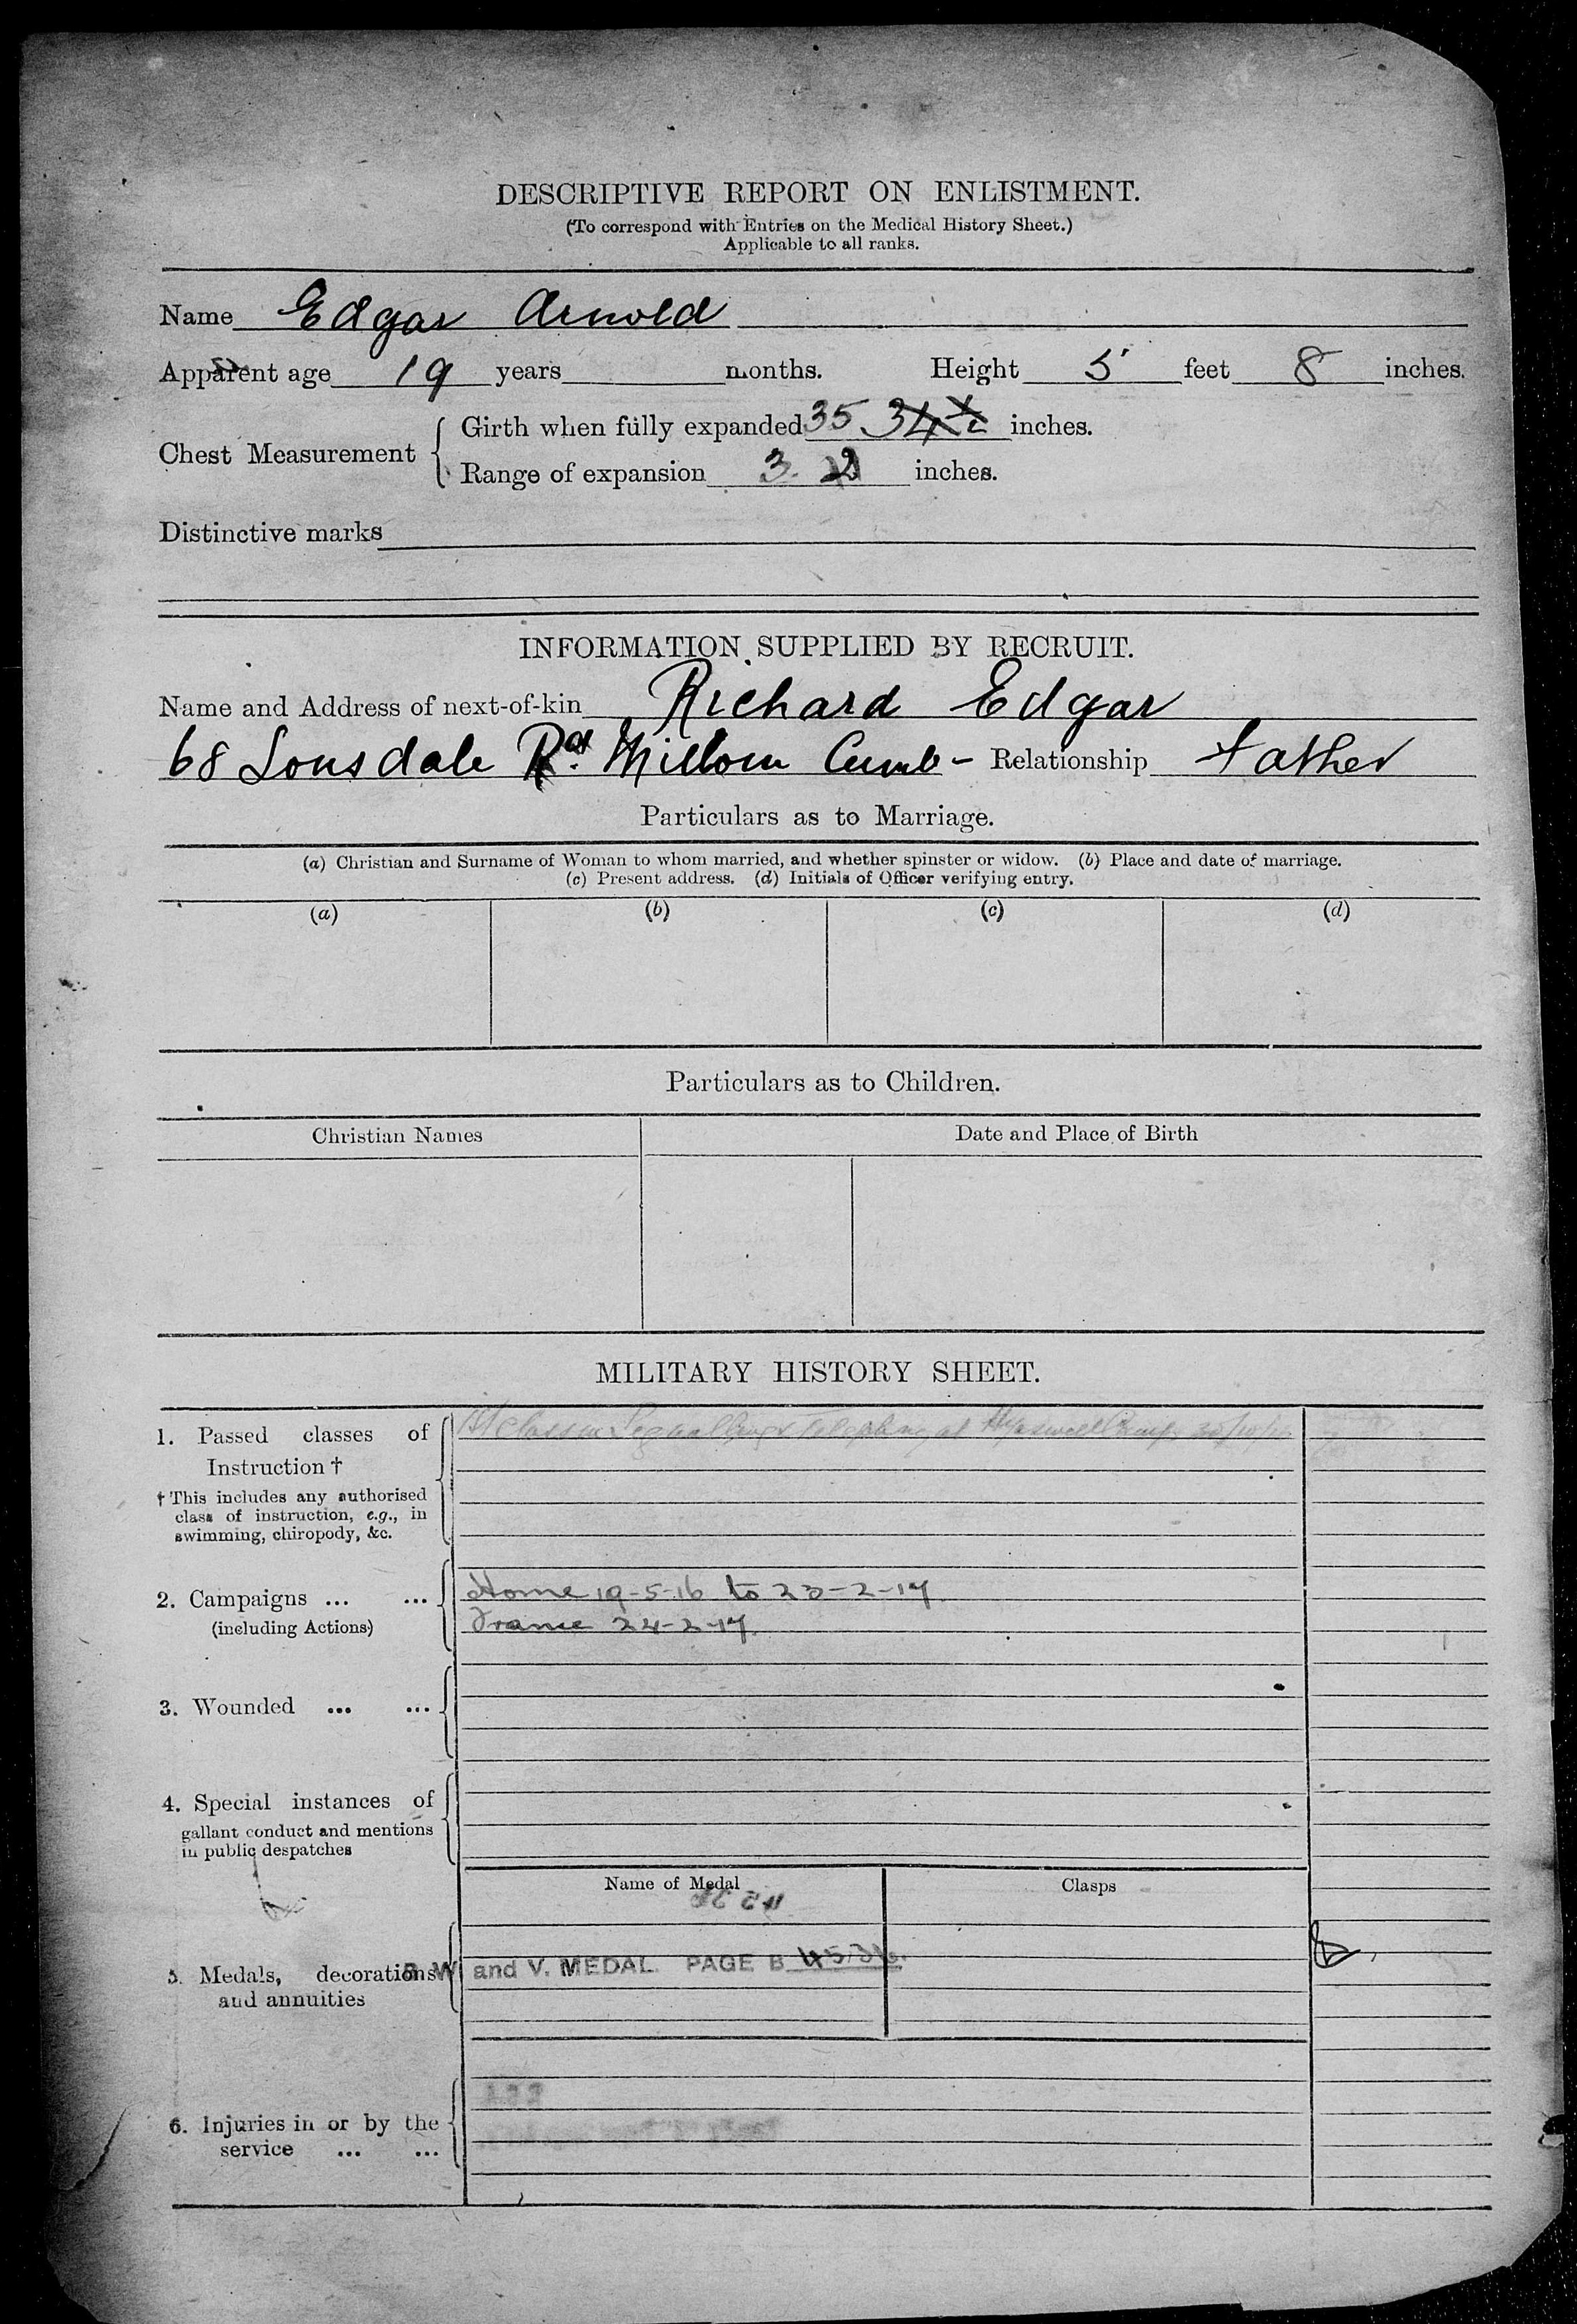 DESCRIPTIVE REPORT ON ENLISTMENT.
(To correspond with Entries on the Medical History Sheet.)
Applicable to all ranks.
Name Edgar Arnold
Apparent age 19 years months. Height 5 feet 8 inches.
Chest Measurement
Girth when fully expanded 35 34½ inches.
Range of expansion 3. 2 inches.
Distinctive marks
INFORMATION SUPPLIED BY RECRUIT.
Name and Address of next-of-kin Richard Edgar
68 Lonsdale Rd. Millom Cumb - Relationship father
Particulars as to Marriage.
(a) Christian and Surname of Woman to whom married, and whether spinster or widow. (b) Place and date of marriage.
(c) Present address. (d) Initials of Officer verifying entry.
(a) (b) (c) (d)
Particulars as to Children.
Christian Names Date and Place of Birth
MILITARY HISTORY SHEET.
1. Passed classes of
Instruction †
† This includes any authorised
class of instruction, e.g., in
swimming, chiropody, &c.
Signalling Telephony at Camp
2. Campaigns ... ...
(including Actions)
Home 19-5-16 to 23-2-17
France 24-2-17.
3. Wounded ... ...
4. Special instances of
gallant conduct and mentions
in public despatches
Name of Medal Clasps
5. Medals, decorations
and annuities
B. W. and V. MEDAL PAGE B
6. Injuries in or by the
service ... ...